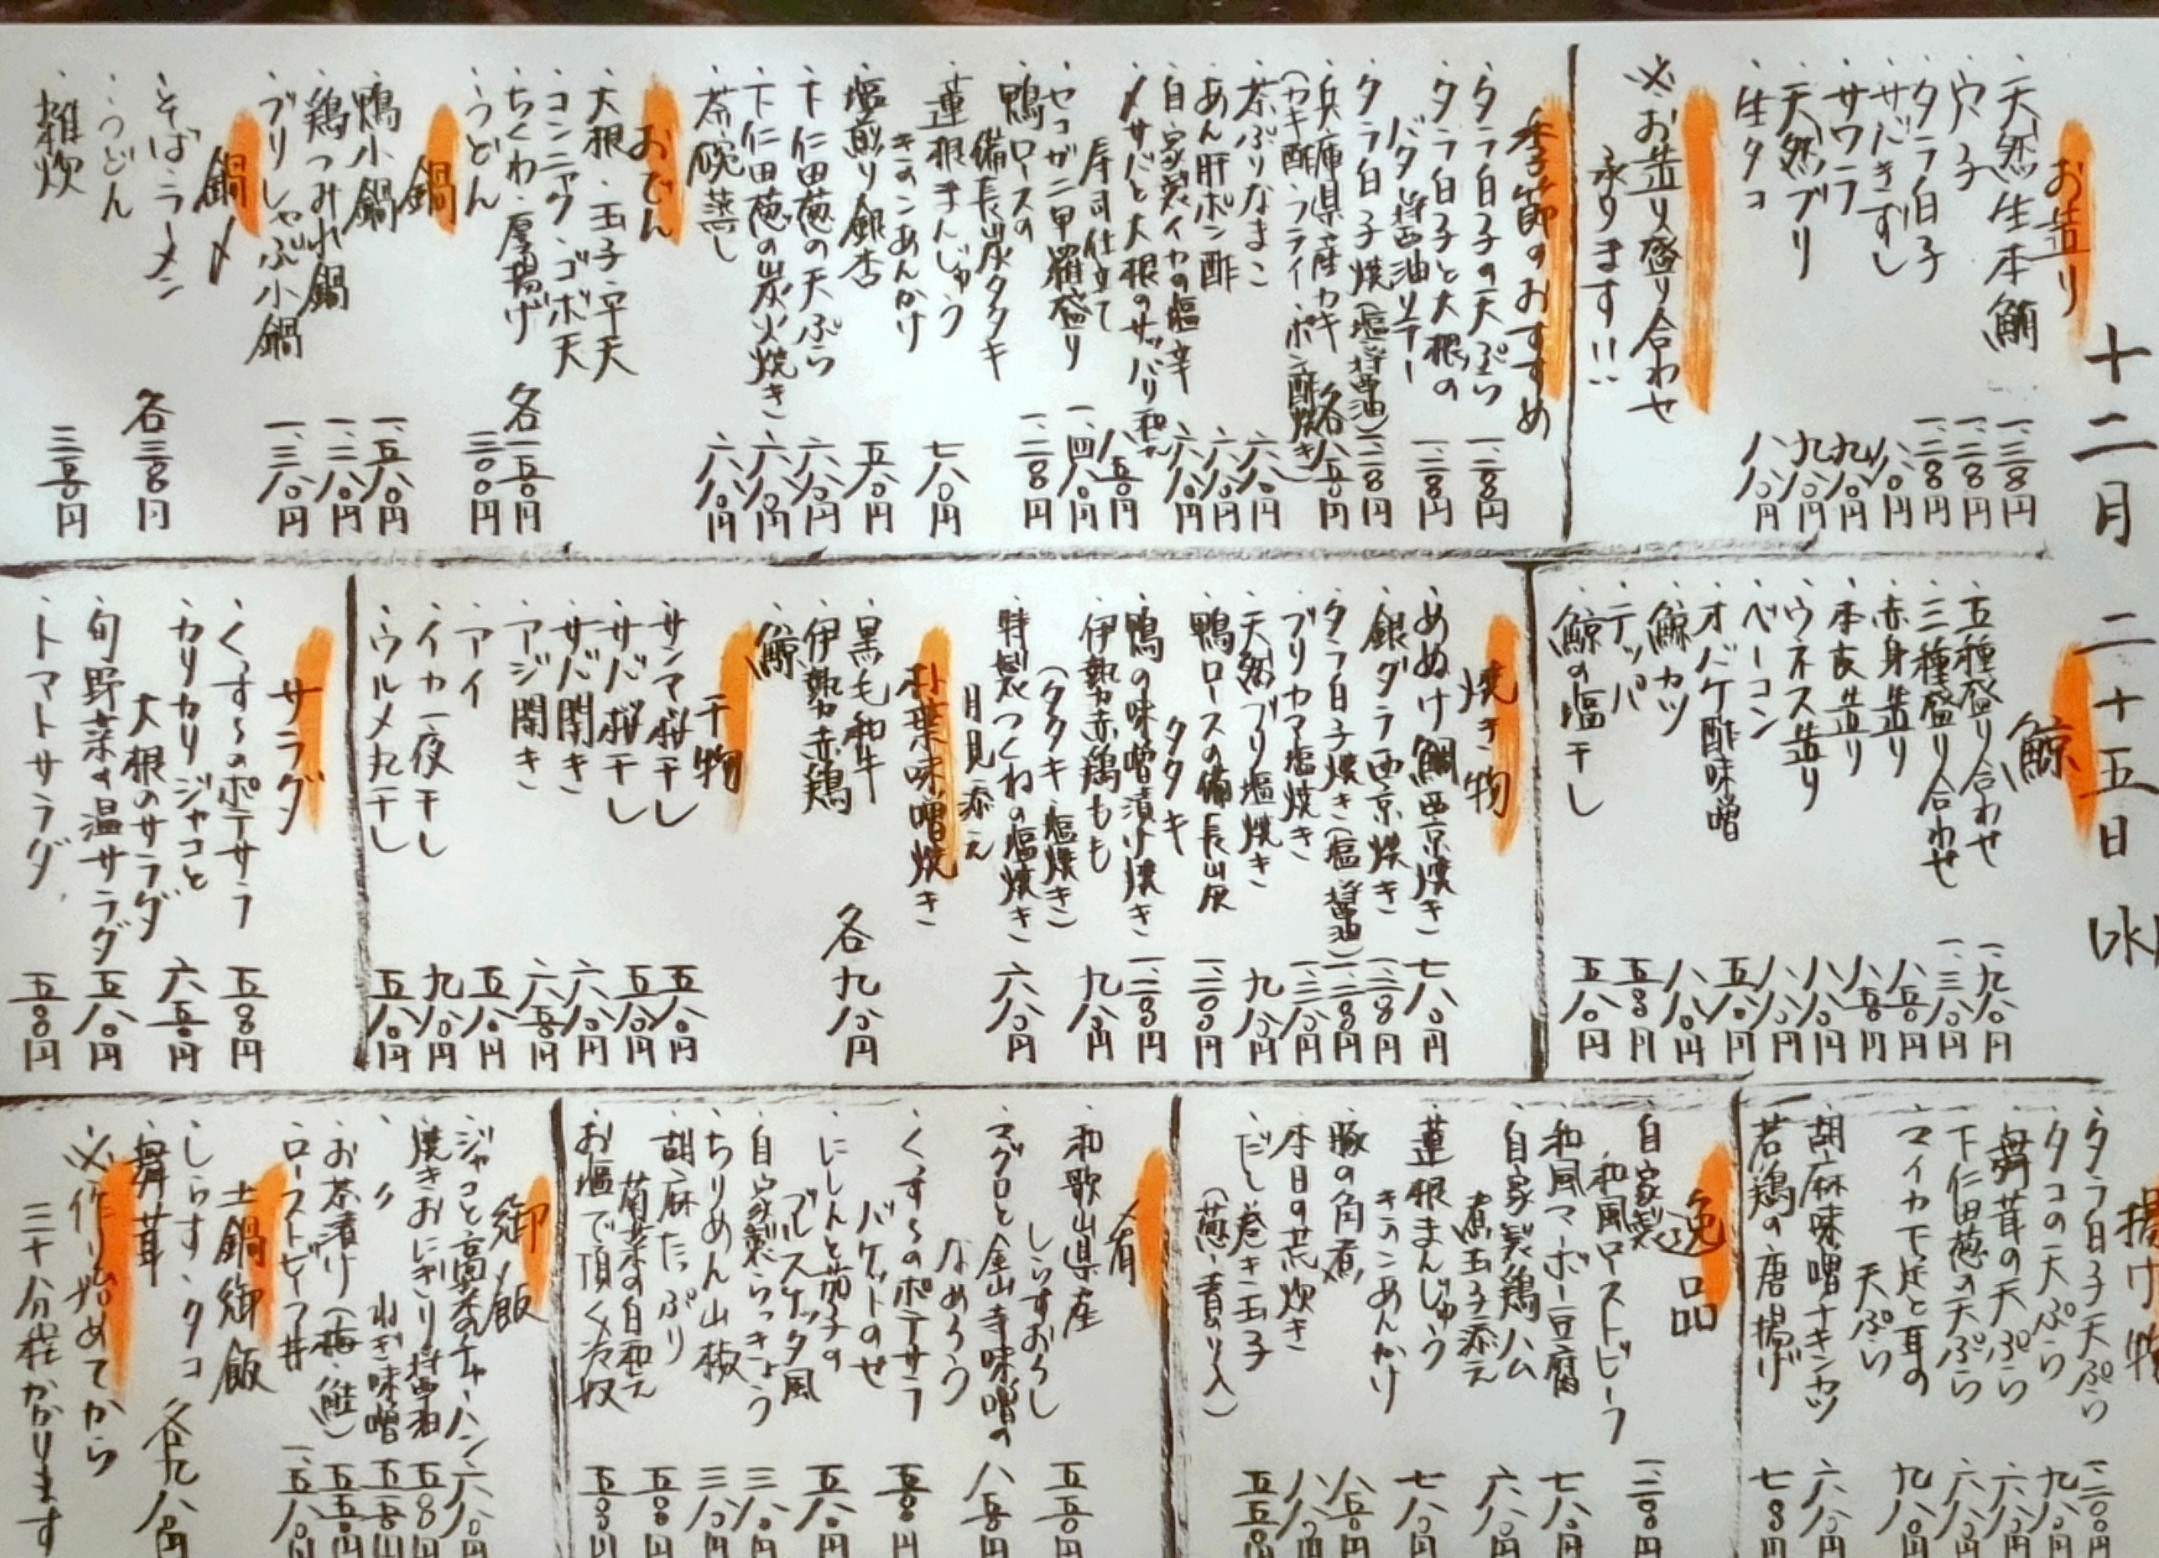 十二月二十五日
お造り
天然生本鮪 一、三八〇円
穴子 一、二八〇円
タラ白子 一、二八〇円
サバきずし 八八〇円
サワラ 九八〇円
天然ブリ 九八〇円
生タコ 八八〇円
※お造り盛り合わせ
承ります!!
季節のおすすめ
タラ白子の天ぷら
タラ白子と大根の
バタ醤油ソテー
タラ白子焼(塩・醤油)
兵庫県産カキ 各八五〇円
(カキ酢・フライ・ポン酢・焼き)
茶ぶりなまこ 六八〇円
あん肝ポン酢 六八〇円
自家製イカの塩辛 六八〇円
〆サバと大根のサッパリ和え
寿司仕立て 八五〇円
セコガニ甲羅盛り 一、四八〇円
鴨ロースの
備長炭タタキ
蓮根まんじゅう
きのこあんかけ 七八〇円
塩煎り銀杏 五八〇円
下仁田葱の天ぷら 六八〇円
下仁田葱の炭火焼き 六八〇円
茶碗蒸し 六八〇円
おでん
大根・玉子・平天
コンニャク・ゴボ天
ちくわ・厚揚げ 各一五〇円
うどん 三〇〇円
鍋
鴨小鍋 一、五八〇円
鶏つみれ鍋
ブリしゃぶ小鍋
鍋〆
そばラーメン
うどん
雑炊
鯨
五種盛り合わせ 一、九八〇円
三種盛り合わせ 一、三八〇円
赤身造り 八五〇円
本皮造り 八五〇円
ウネス造り 八八〇円
ベーコン 八八〇円
オバケ酢味噌 五八〇円
鯨カツ 八八〇円
テッパ
鯨の塩干し 五八〇円
焼き物
めぬけ鯛西京焼き 七八〇円
銀ダラ西京焼き
タラ白子焼き(塩・醤油)
ブリカマ塩焼き
天然ブリ塩焼き 九八〇円
鴨ロースの備長炭
タタキ
鴨の味噌漬け焼き
伊勢赤鶏もも 九八〇円
(タタキ・塩焼き)
特製つくねの塩焼き 六八〇円
月見添え
朴葉味噌焼き
黒毛和牛
伊勢赤鶏
鯨
各九八〇円
干物
サンマ桜干し 五八〇円
サバ桜干し 五八〇円
サバ開き 六八〇円
アジ開き 六五〇円
アイ 五八〇円
イカ一夜干し 九八〇円
ウルメ丸干し 五八〇円
サラダ
くす〜のポテサラ
カリカリジャコと
大根のサラダ 六五〇円
旬野菜の温サラダ 五八〇円
トマトサラダ
揚げ物
タラ白子天ぷら
タコの天ぷら 九八〇円
舞茸の天ぷら 六八〇円
下仁田葱の天ぷら 六八〇円
マイカ下足と耳の
天ぷら 九八〇円
胡麻味噌チキンカツ 六八〇円
若鶏の唐揚げ
逸品
自家製
和風ローストビーフ
和風マーボー豆腐 七八〇円
自家製鶏ハム
煮玉子添え 六八〇円
蓮根まんじゅう
きのこあんかけ 七八〇円
豚の角煮 八五〇円
本日の荒炊き
だし巻き玉子
(葱・青のり入)
肴
和歌山県産
しらすおろし 五五〇円
マグロと金山寺味噌の
なめろう 八五〇円
くす〜のポテサラ
バケットのせ
にしんと茄子の
ブルスケッタ風 五八〇円
自家製らっきょう 三八〇円
ちりめん山椒 三八〇円
胡麻たっぷり
菊菜の白和え
お塩で頂く冷奴
御飯
ジャコと高菜のチャーハン 六八〇円
焼きおにぎり 醤油
〃 ねぎ味噌
お茶漬け(梅・鮭) 五五〇円
ローストビーフ丼 一、五八〇円
土鍋御飯
しらす・タコ
舞茸
各九八〇円
※作り始めてから
三十分程かかります